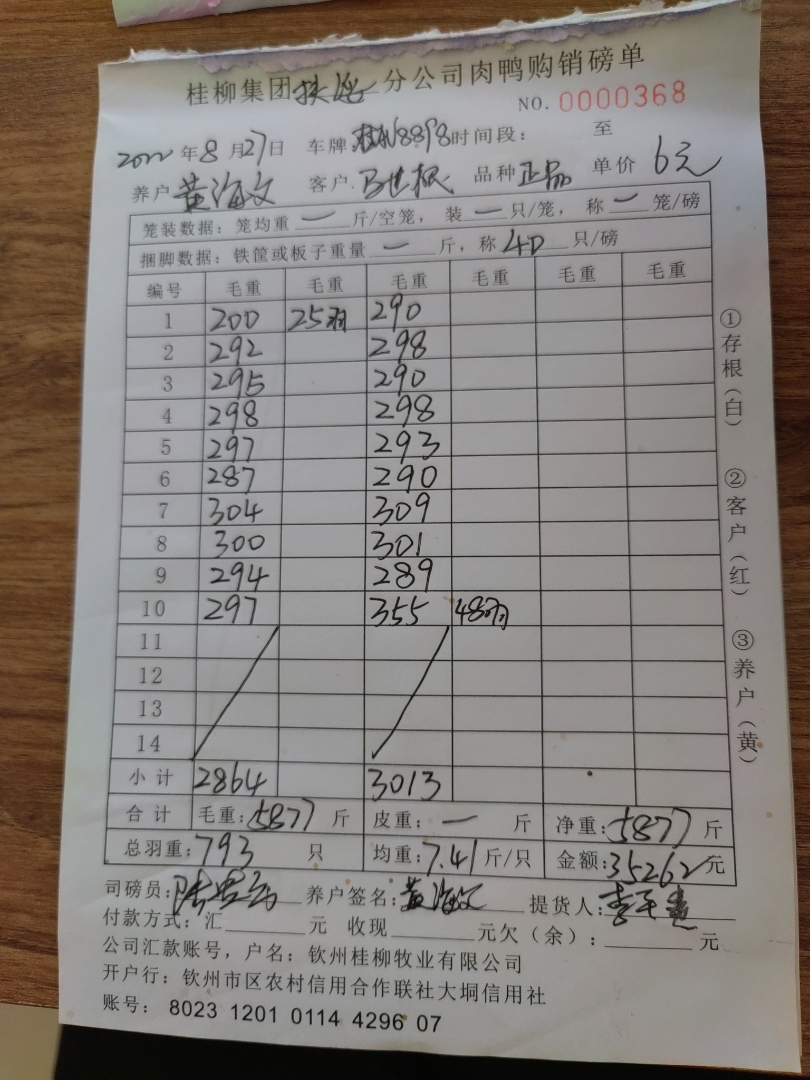 桂柳集团扶隆分公司肉鸭购销磅单
NO. 0000368
2022年8月27日 车牌:桂N8898时间段: 至
养户 黄海文 客户: 品种 正品 单价 6元
笼装数据: 笼均重 一 斤/空笼, 装 一 只/笼, 称 一 笼/磅
捆脚数据: 铁筐或板子重量 一 斤, 称 40 只/磅
编号 毛重 毛重 毛重 毛重 毛重 毛重
1 200 25羽 290
2 292 298
3 295 290
4 298 298
5 297 293
6 287 290
7 304 309
8 300 301
9 294 289
10 297 355 48羽
11
12
13
14
小计 2864 3013
合计 毛重:5877 斤 皮重: 一 斤 净重:5877 斤
总羽重:793 只 均重:7.41斤/只 金额:35262元
司磅员: 养户签名:黄海文 提货人:
付款方式:汇 元 收现 元欠(余): 元
公司汇款账号,户名:钦州桂柳牧业有限公司
开户行:钦州市区农村信用合作联社大垌信用社
账号: 8023 1201 0114 4296 07
①存根(白)
②客户(红)
③养户(黄)